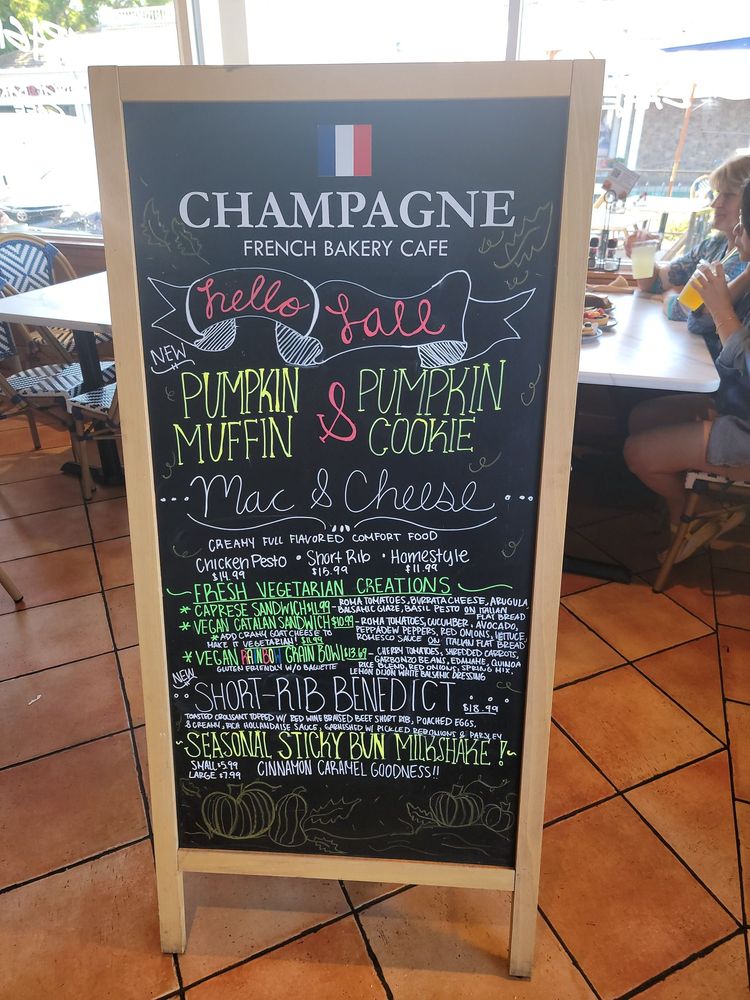 CHAMPAGNE
FRENCH BAKERY CAFE
hello fall
NEW
PUMPKIN MUFFIN & PUMPKIN COOKIE
Mac & Cheese
CREAMY FULL FLAVORED COMFORT FOOD
Chicken Pesto • Short Rib • Homestyle
$14.99 $15.99 $11.99
FRESH VEGETARIAN CREATIONS
* CAPRESE SANDWICH $11.99 - ROMA TOMATOES, BURRATA CHEESE, ARUGULA,
BALSAMIC GLAZE, BASIL PESTO ON ITALIAN FLAT BREAD
* VEGAN CATALAN SANDWICH $10.99 - ROMA TOMATOES, CUCUMBER, AVOCADO,
PEPPADEW PEPPERS, RED ONIONS, LETTUCE,
ROMESCO SAUCE ON ITALIAN FLAT BREAD
* ADD CRAMY GOAT CHEESE TO
MAKE IT VEGETARIAN! $11.99
* VEGAN RAINBOW GRAIN BOWL $13.69 - CHERRY TOMATOES, SHREDDED CARROTS,
GARBONZO BEANS, EDAMAME, QUINOA
RICE BLEND, RED ONIONS, SPRING MIX,
LEMON DIJON WHITE BALSAMIC DRESSING
GLUTEN FRIENDLY W/O BAGUETTE
NEW
SHORT-RIB BENEDICT $18.99
TOASTED CROISSANT TOPPED W/ RED WINE BRAISED BEEF SHORT RIB, POACHED EGGS,
& CREAMY, RICH HOLLANDAISE SAUCE, GARNISHED W/ PICKLED RED ONIONS & PARSLEY
~SEASONAL STICKY BUN MILKSHAKE!~
SMALL $5.99
LARGE $7.99
CINNAMON CARAMEL GOODNESS!!